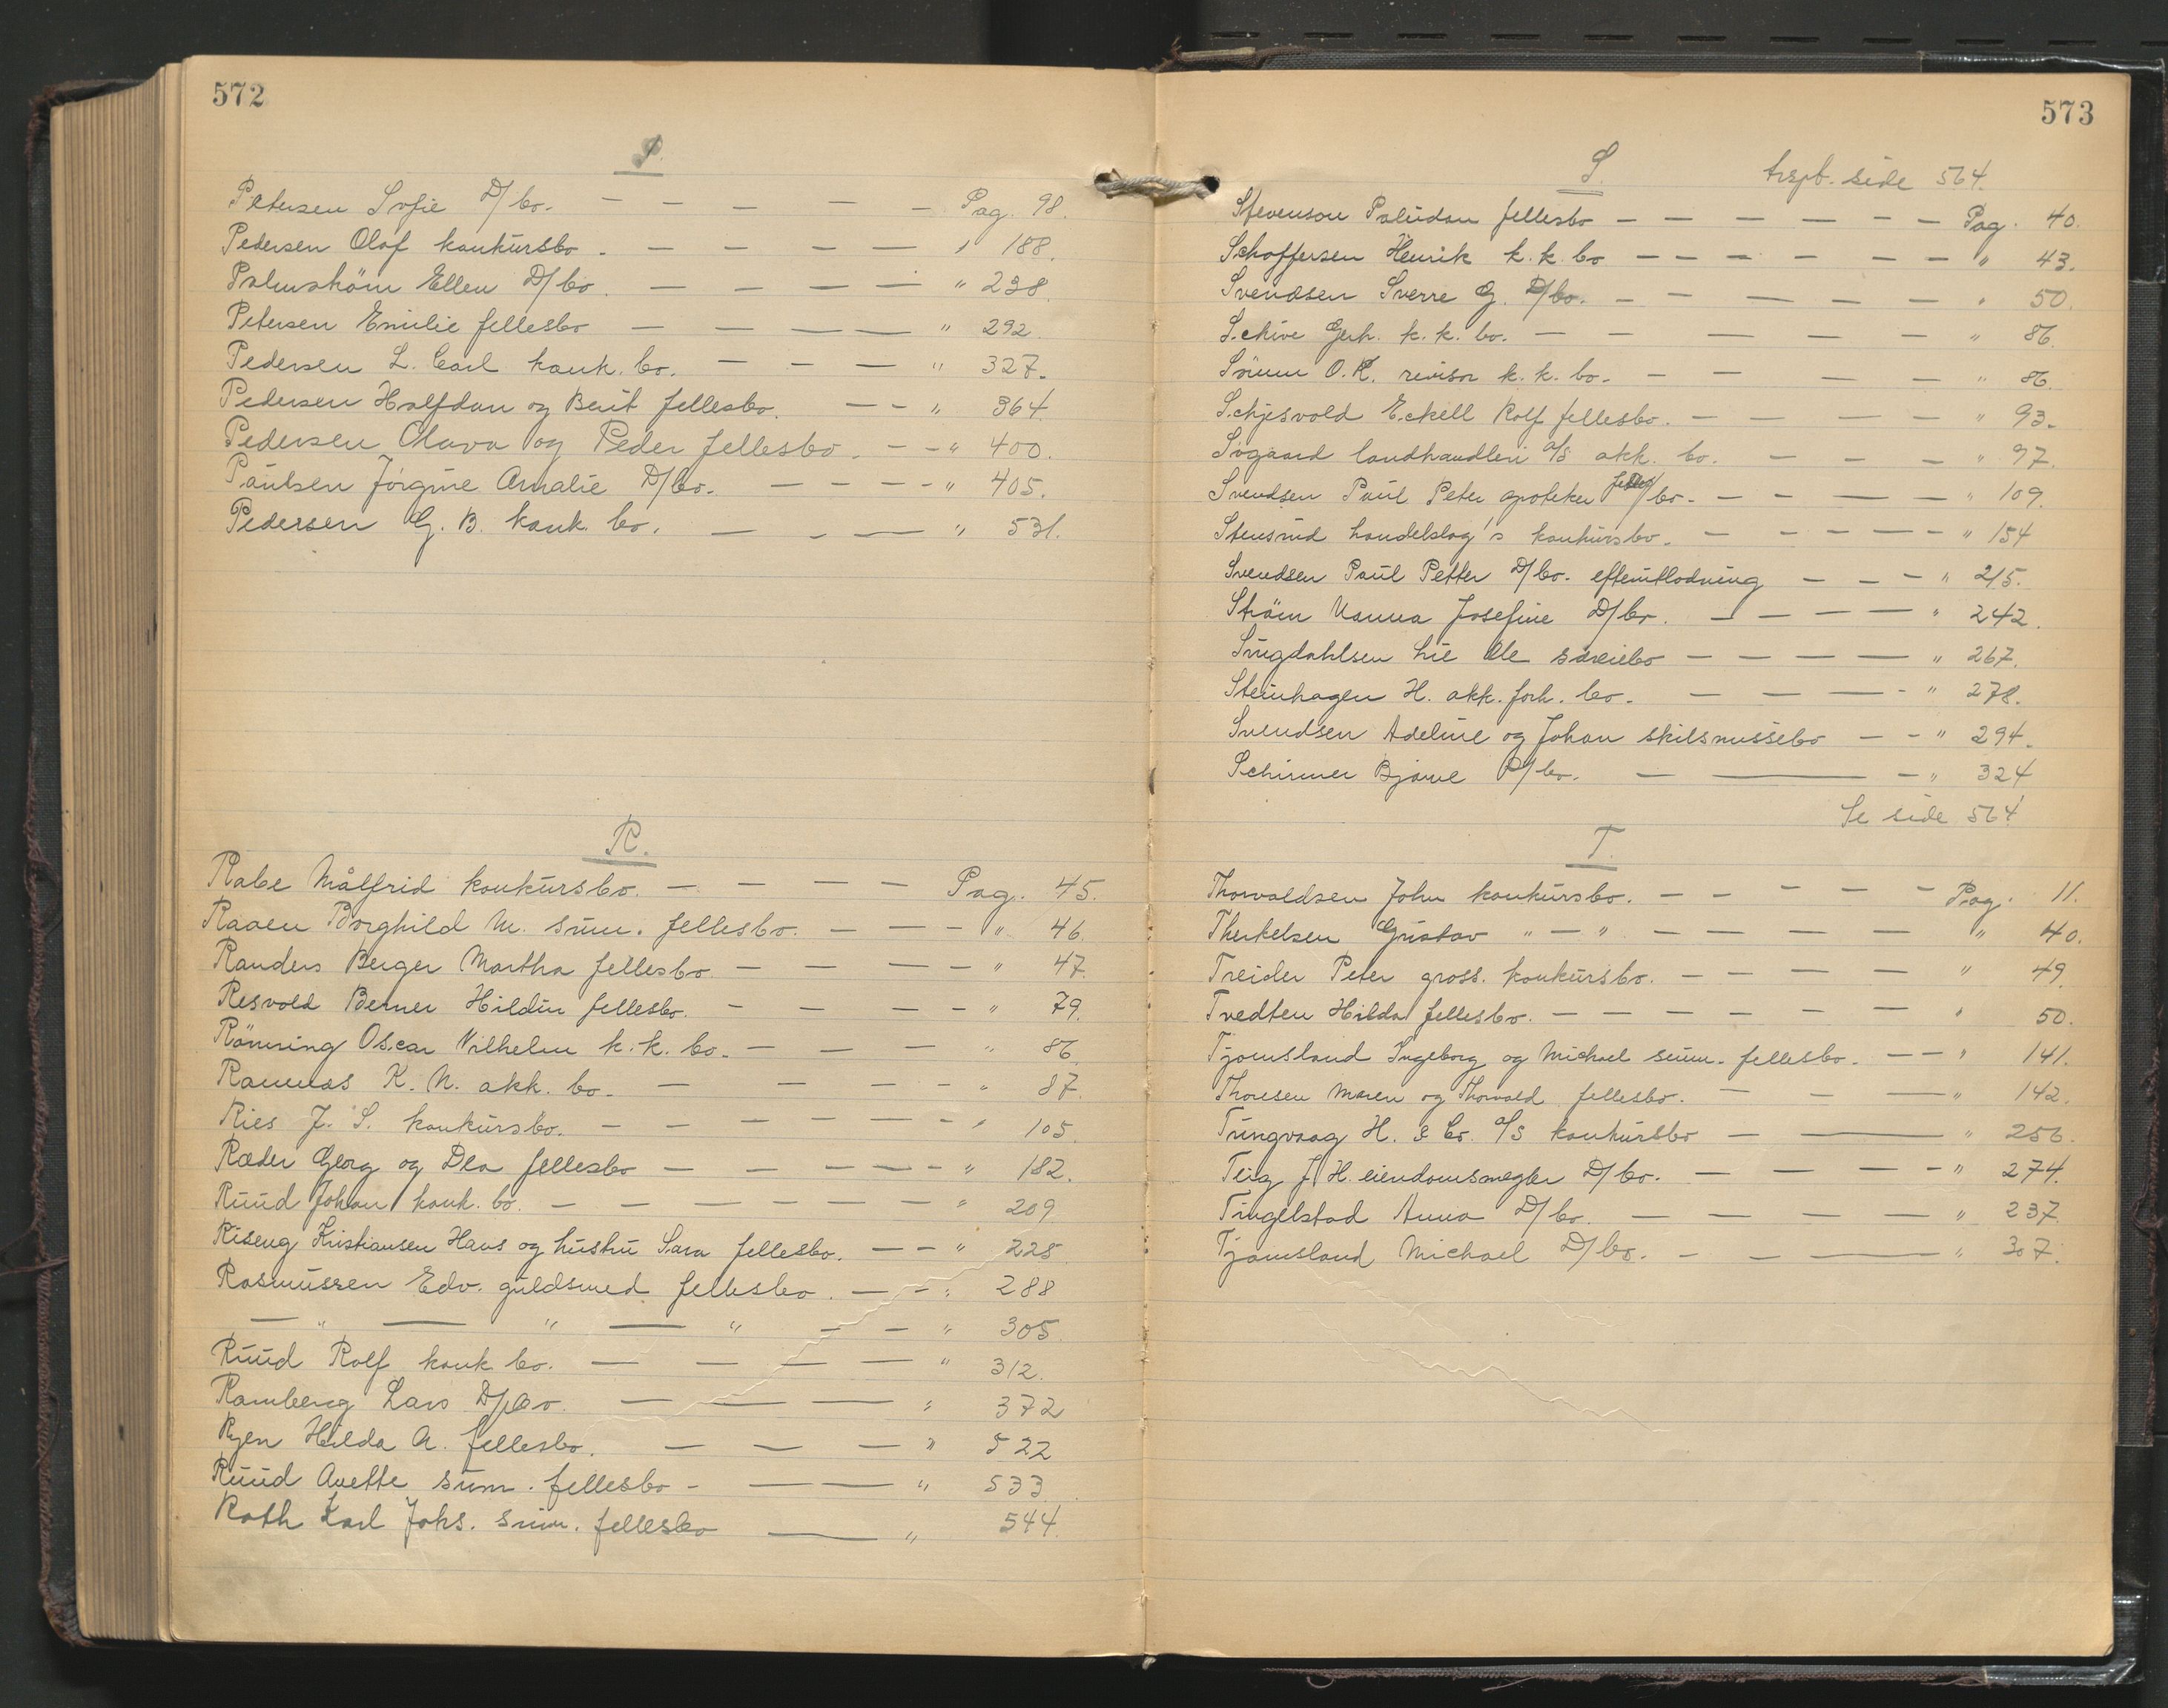 572
P.
Petersen Sofie D/bo. — — — — — Pag. 98.
Pedersen Olaf konkursbo. — — — — " 188.
Palmström Ellen D/bo. — — — — " 238.
Petersen Emilie fellesbo — — — — " 292.
Pedersen L. Carl konk. bo. — — — " 327.
Pedersen Halfdan og Berit fellesbo. — — " 364
Pedersen Olava og Peder fellesbo. — — " 400.
Paulsen Jörgine Amalie D/bo. — — — — " 405.
Pedersen G. B. konk. bo. — — — " 531.
R.
Rabe Målfrid konkursbo. — — — — Pag. 45.
Raaen Borghild M. sum. fellesbo. — — — " 46.
Randers Berger Martha fellesbo — — — — " 47.
Resvold Berner Hildur fellesbo. — — — — " 79.
Rönning Oscar Vilhelm k.k. bo. — — — " 86
Ramnæs K. N. akk. bo. — — — — " 87.
Ries J. S. konkursbo. — — — — — " 105.
Ræder Georg og Dea fellesbo — — — — — " 182.
Ruud Johan konk. bo. — — — — — " 209
Riseng Kristiansen Hans og hustru Sara fellesbo. — — " 225
Rasmussen Edv. guldsmed fellesbo. — — " 288
— " — " — " — — " 305.
Ruud Rolf konk bo. — — — — " 312.
Ramberg Lars D/bo — — — " 372
Ryen Hilda A. fellesbo. — — — " 522
Ruud Anette sum. fellesbo - — — " 533
Roth Karl Johs. sum. fellesbo — " 544.
573
S. side 564.
Stevenson Paludan fellesbo — — — — — — — Pag. 40.
Schoffersen Henrik k.k. bo — — — — — — " 43.
Svendsen Sverre G. D/bo. — — — — — — " 50.
Schive Gerh. k.k. bo. — — — — — " 86.
O. K. revisor k.k. bo. — — — — " 86.
Schjesvold Eckell Rolf fellesbo. — — — — " 93.
Sögaard landhandleri A/S akk. bo. — — — " 97.
Svendsen Paul Peter apoteker felles/bo. — — — — " 109.
Stensrud handelslag's konkursbo. — — — — — " 154
Svendsen Paul Petter D/bo. efterutlodning — — — " 215.
Ström Nanna Josefine D/bo. — — — — " 242.
Lie Ole særeiebo — — — — " 267.
Steinhagen H. akk. forh. bo. — — — - " 278.
Svendsen Adeline og Johan skilsmissebo — - " 294.
Schirmer Bjarne D/bo. — — — " 324
Se side 564
T.
Thorvaldsen John konkursbo. — — — — — Pag. 11.
Therkelsen Gustav " — " — — — — — " 40.
Treider Peter gross. konkursbo. — — — — " 49.
Tvedten Hilda fellesbo. — — — — — — — " 50.
Tjomsland Ingeborg og Michael sum. fellesbo. — — " 141.
Thoresen Maren og Thorvald fellesbo. — — — " 142.
Tungvaag H. & Co. A/S konkursbo — — " 256.
Teig J. H. eiendomsmegler D/bo. — — — — " 274.
Tingelstad Anna D/bo. — — — — " 237.
Tjomsland Michael D/bo. — — — " 307.